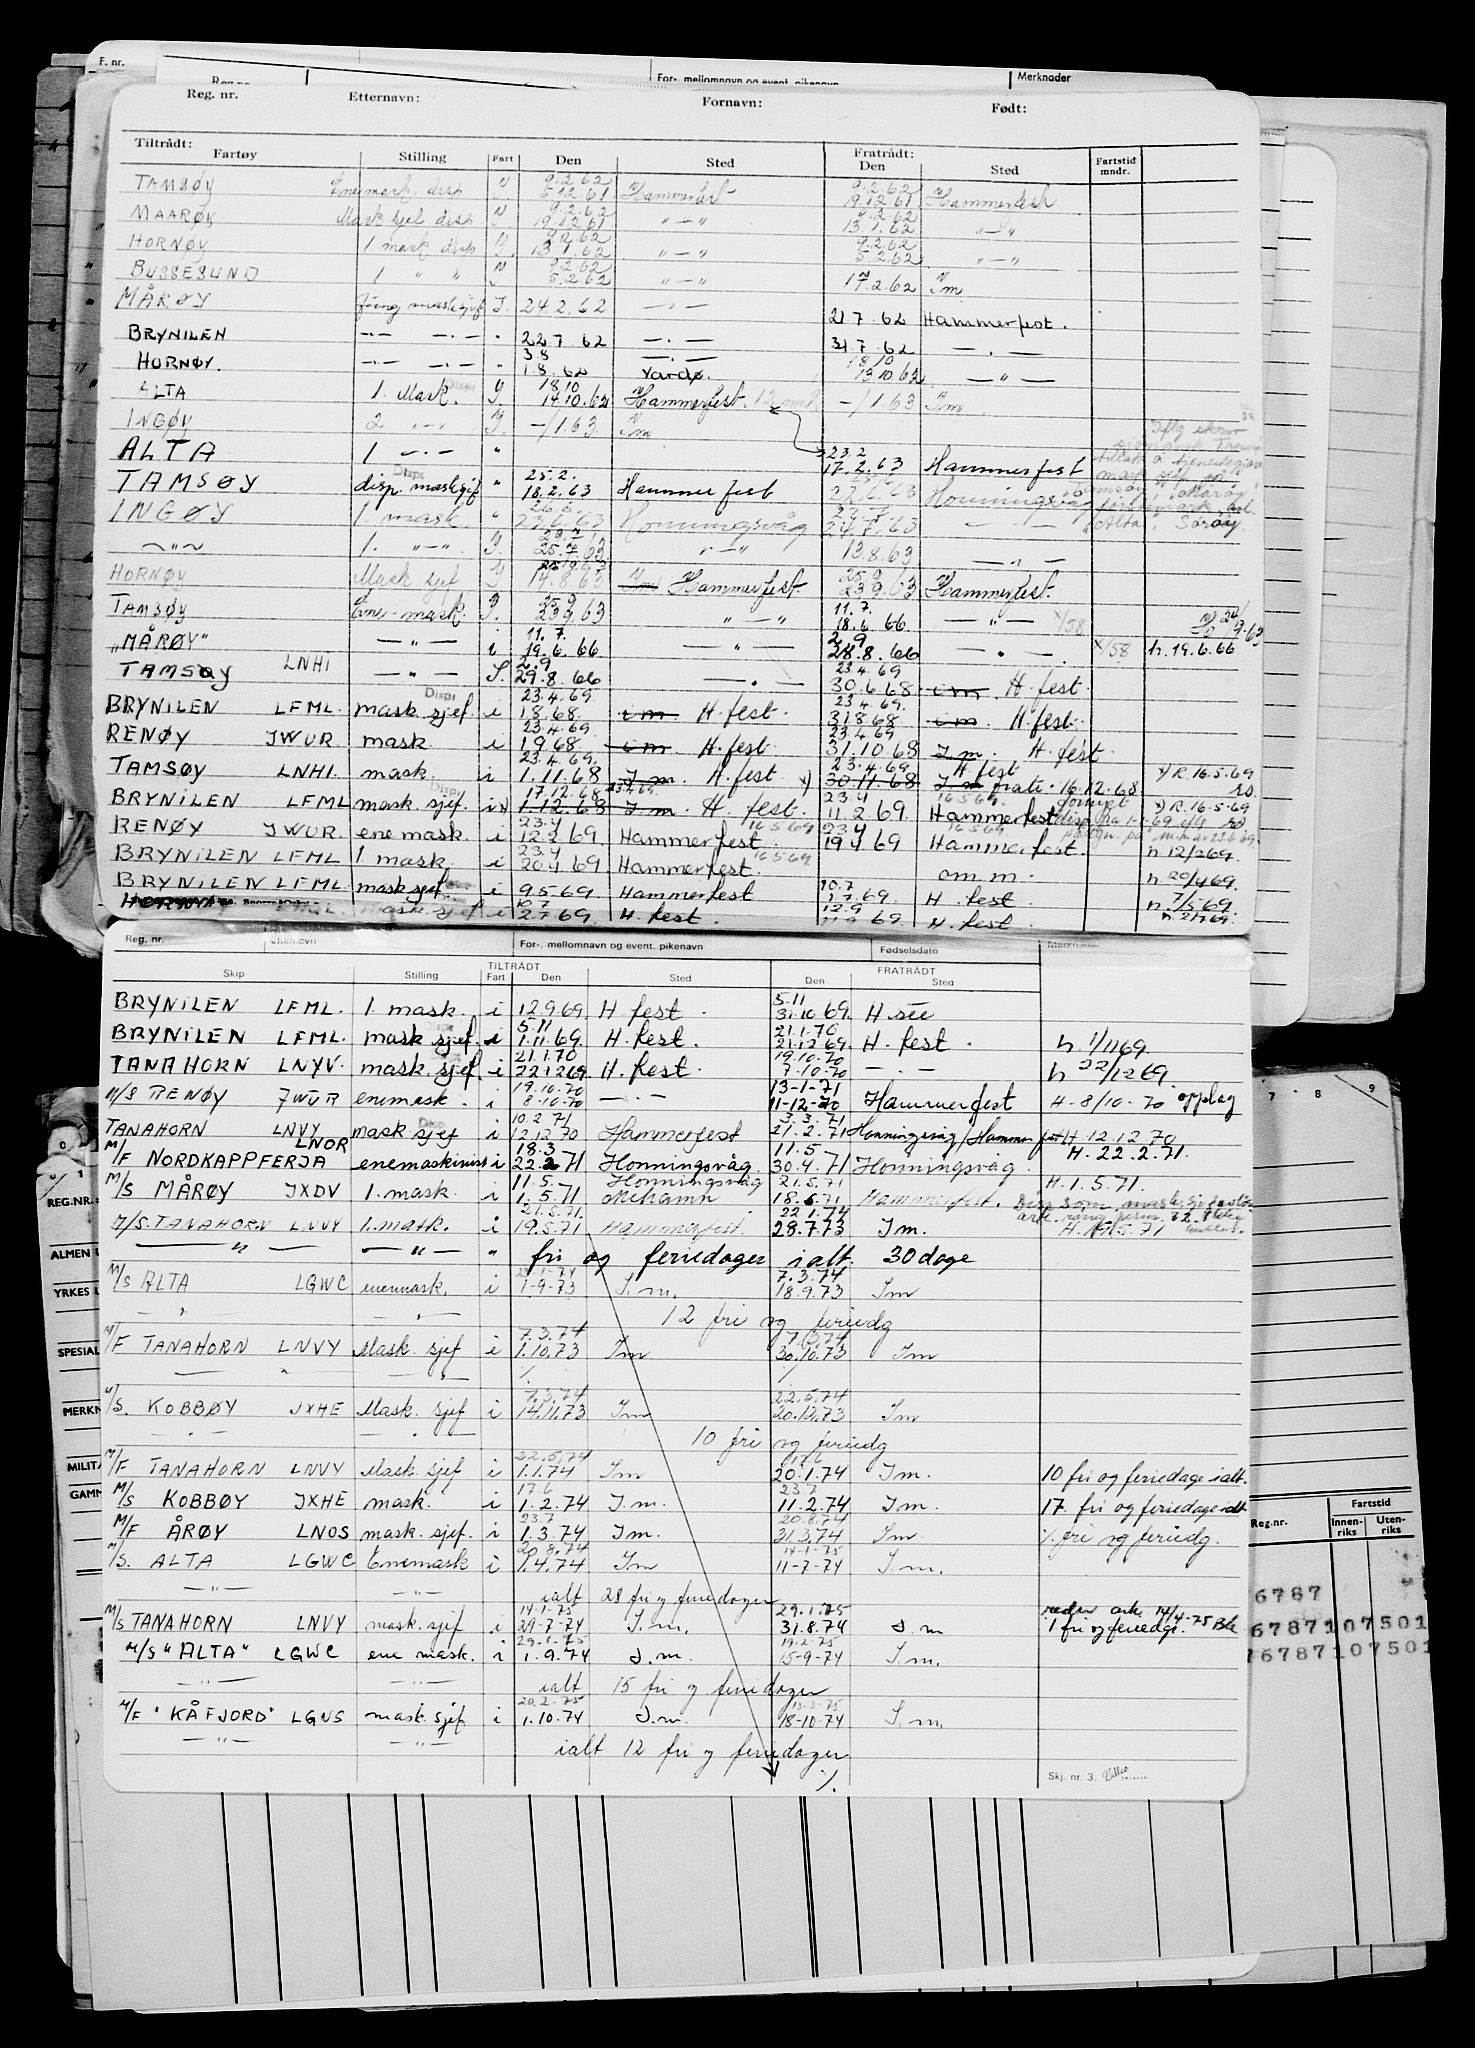 F. nr. For-, mellomnavn og event. pikenavn Merknader
Reg. nr. Etternavn: Fornavn: Født:
Tiltrådt: Fratrådt: Fartstid mndr.
Fartøy Stilling Fart Den Sted Den Sted
9.2.62 9.2.62
TAMSØY Enemask. disp 5.12.61 Hammerfest 19.12.61 Hammerfest
9.2.62 9.2.62
MAARØY Mask sjef disp 19.12.61 —"— 13.1.62 —"—
9.2.62 9.2.62
HORNØY 1 mask disp 13.1.62 —"— 5.2.62 —"—
9.2.62
BUSSESUND 1 " " 5.2.62 —"— 17.2.62 Im
MÅRØY fung masksjef I. 24.2.62 —"— 21.7.62 Hammerfest.
BRYNILEN —"— " 22.7.62 —"— 31.7.62 —"—
3.8 18/10
HORNØY. —"— " 1.8.62 Vardø. 13.10.62 —"—
18/10
ALTA 1. Mask. I. 14.10.62 Hammerfest. -/1.63 Im
INGØY 2 —"— I. -/1.63. Im
23.2
ALTA 1 —"— " 17.2.63 Hammerfest
25.2.
TAMSØY disp. masksjef " 18.2.63 Hammerfest 22.6.63 Honningsvåg
INGØY 1. mask. " 23.6.63 Honningsvåg 24.7.63 —"—
—"— 1. —"— I. 25.7.63 —"— 13.8.63 —"—
25.9
HORNØY Mask sjef I 14.8.63 Im Hammerfest. 23.9.63 Hammerfest.
25.9 11.7.
TAMSØY Ene-mask. I. 23.9.63 —"— 18.6.66. —"— x/58
11.7. 2.9
"MÅRØY" —"— i 19.6.66 —"— 28.8.66 —"— x/58 h.19.6.66
2.9 23.4.69
TAMSØY LNHI —"— I. 29.8.66 —"— 30.6.68 im H.fest.
23.4.69 23.4.69.
BRYNILEN LFML. mask. sjef i 1.8.68. im H.fest. 31.8.68 im. H.fest.
23.4.69. 23.4.69
RENØY JWUR mask. i 1.9.68 im. H.fest. 31.10.68 I.m. H.fest.
23.4.69. 23.4.69 H.fest
TAMSØY LNHI. mask. i 1.11.68 I.m. H.fest x) 30.11.68 I.m fratr. 16.12.68 x) R.16.5.69
17.12.68 23.4.69 23.4 16.5.69.
BRYNILEN LFML mask. sjef. i x) 1.12.68 I.m. H.fest. 11.2.69. Hammerfest x) R.16.5.69
23.4 16.5.69 23.4 16.5.69
RENØY JWUR. ene mask. i 12.2.69. Hammerfest. 19.4.69 Hammerfest. h 12/2 69.
23.4 16.5.69
BRYNILEN LFML 1. mask. i 20.4.69 Hammerfest. om.m. h 20/4 69.
10.7
BRYNILEN LFML. mask sjef. i 9.5.69. Hammerfest 1.7.69 H. fest. h 7/5 69
10.7 12.9
HORNØY mask. sjef i 2.7.69. H. fest. 69. H. fest. h 2/7 69.
Reg. nr. For-, mellomnavn og event. pikenavn Fødselsdato Merknader
TILTRÅDT FRATRÅDT
Skip Stilling Fart Den Sted Den Sted
5.11
BRYNILEN LFML. 1. mask. i 12.9.69. H. fest. 31.10.69. H. see
5.11 21.1.70
BRYNILEN LFML. mask sjef. i 1.11.69. H. fest. 21.12.69. H. fest. h 1/11 69.
21.1.70 19.10.70
TANAHORN LNYV. mask. sjef. i 22.12.69. H. fest. 7.10.70 —.— h 22/12 69.
19.10.70 13-1-71
M/S RENØY JWUR enemask. i 8.10.70 —.— 11-12-70 Hammerfest H-8/10-70 opplag
10.2.71 3.3.71
TANAHORN LNVY mask sjef i 12.12.70 Hammerfest 21.2.71 Honningsvåg/Hammerfest H.12.12.70
LNOR 18.3 11.5
M/F NORDKAPPFERJA enemaskinist i 22.2.71 Honningsvåg. 30.4.71 Honningsvåg H. 22.2.71.
11.5. Honningsvåg 21.5.71
M/S MÅRØY JXDV 1. mask. i 1.5.71 Mehamn 18.5.71 Hammerfest. H.1.5.71.
21.5.71. 22.1.74
M/S. TANAHORN LNVY 1. mask. i 19.5.71 Hammerfest. 28.7.73 Im. H.19.5.71
—"— —"— " fri og feriedager ialt. 30 dage
7.3.74
M/S ALTA LGWC enemask. i 1-9-73 I.m. 18.9.73 Im
—"— —"— 12 fri og feriedg
7.3.74 7.3.74
M/F TANAHORN LNVY Mask. sjef i 1.10.73 Im 30.10.73 Im
—"— —"— % %
7.3.74 22.5.74
M/S. KOBBØY JXHE Mask. sjef i 14.11.73 Im 20.12.73 Im
—"— —"— 10 fri og feriedg
22.5.74 17.6
M/F TANAHORN LNVY Mask. sjef i 1.1.74 Im 20.1.74 Im. 10 fri og feriedage ialt.
17.6 23.7
M/S KOBBØY JXHE mask. i 1.2.74 I.m. 11.2.74 Im. 17. fri og feriedage ialt
23.7 20.8.74
M/F ÅRØY LNOS mask. sjef. i 1.3.74 Im. 31.3.74 Im. % fri og feriedg.
20.8.74 14-1-75
M/S. ALTA LGWC Enemask i 1.4.74 Im 11-7-74 I.m.
—"— —"— ialt 28 fri og feriedager
14-1-75 29.1.75
M/S TANAHORN LNVY mask. sjef i 29-7-74 I.m. 31.8.74 I.m 1 fri og feriedg.
29.1.75 19-2-75
M/S "ALTA" LGWC ene mask. i 1.9.74 I.m. 15-9-74 I.m.
—"— —"— ialt 15 fri og feriedager
20.2.75
M/F "KÅFJORD" LGNS mask. sjef i 1.10.74 I.m. 18-10-74 I.m.
—"— —"— ialt 12 fri og feriedager
%
Skj. nr. 3.
7 - 8 - 9
REG.NR.
ALMEN
YRKES
SPESIAL
MERKN
MILIT
GAMM
Reg.nr. Fartstid
Innenriks Utenriks
6787
6787107501
76787107501